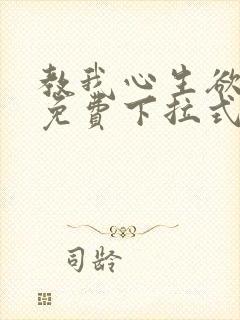 教我心生欲
免费下拉式
司龄